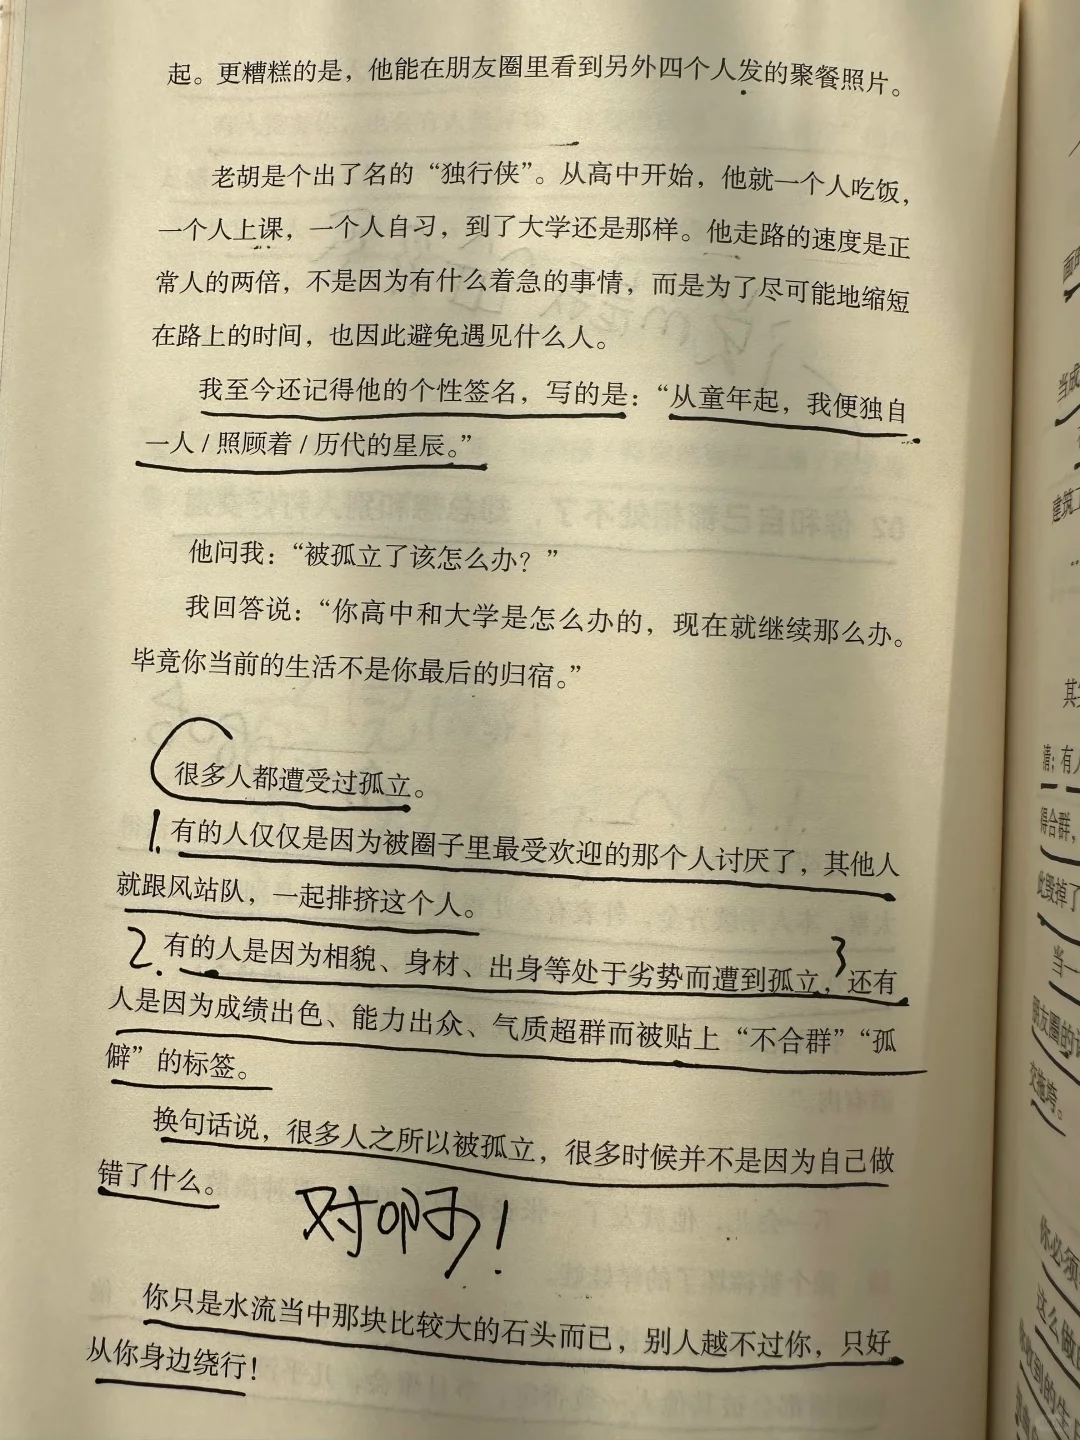 起。更糟糕的是，他能在朋友圈里看到另外四个人发的聚餐照片。
老胡是个出了名的“独行侠”。从高中开始，他就一个人吃饭，
一个人上课，一个人自习，到了大学还是那样。他走路的速度是正
常人的两倍，不是因为有什么着急的事情，而是为了尽可能地缩短
在路上的时间，也因此避免遇见什么人。
我至今还记得他的个性签名，写的是：“从童年起，我便独自
一人 / 照顾着 / 历代的星辰。”
他问我：“被孤立了该怎么办？”
我回答说：“你高中和大学是怎么办的，现在就继续那么办。
毕竟你当前的生活不是你最后的归宿。”
很多人都遭受过孤立。
1. 有的人仅仅是因为被圈子里最受欢迎的那个人讨厌了，其他人
就跟风站队，一起排挤这个人。
2. 有的人是因为相貌、身材、出身等处于劣势而遭到孤立，3 还有
人是因为成绩出色、能力出众、气质超群而被贴上“不合群”“孤
僻”的标签。
换句话说，很多人之所以被孤立，很多时候并不是因为自己做
错了什么。
对啊！
你只是水流当中那块比较大的石头而已，别人越不过你，只好
从你身边绕行！
当成
建筑
其实
请；有人
得合群，
此毁掉了
当一
朋友圈的
交拖垮。
你必须
这么做
收到的生